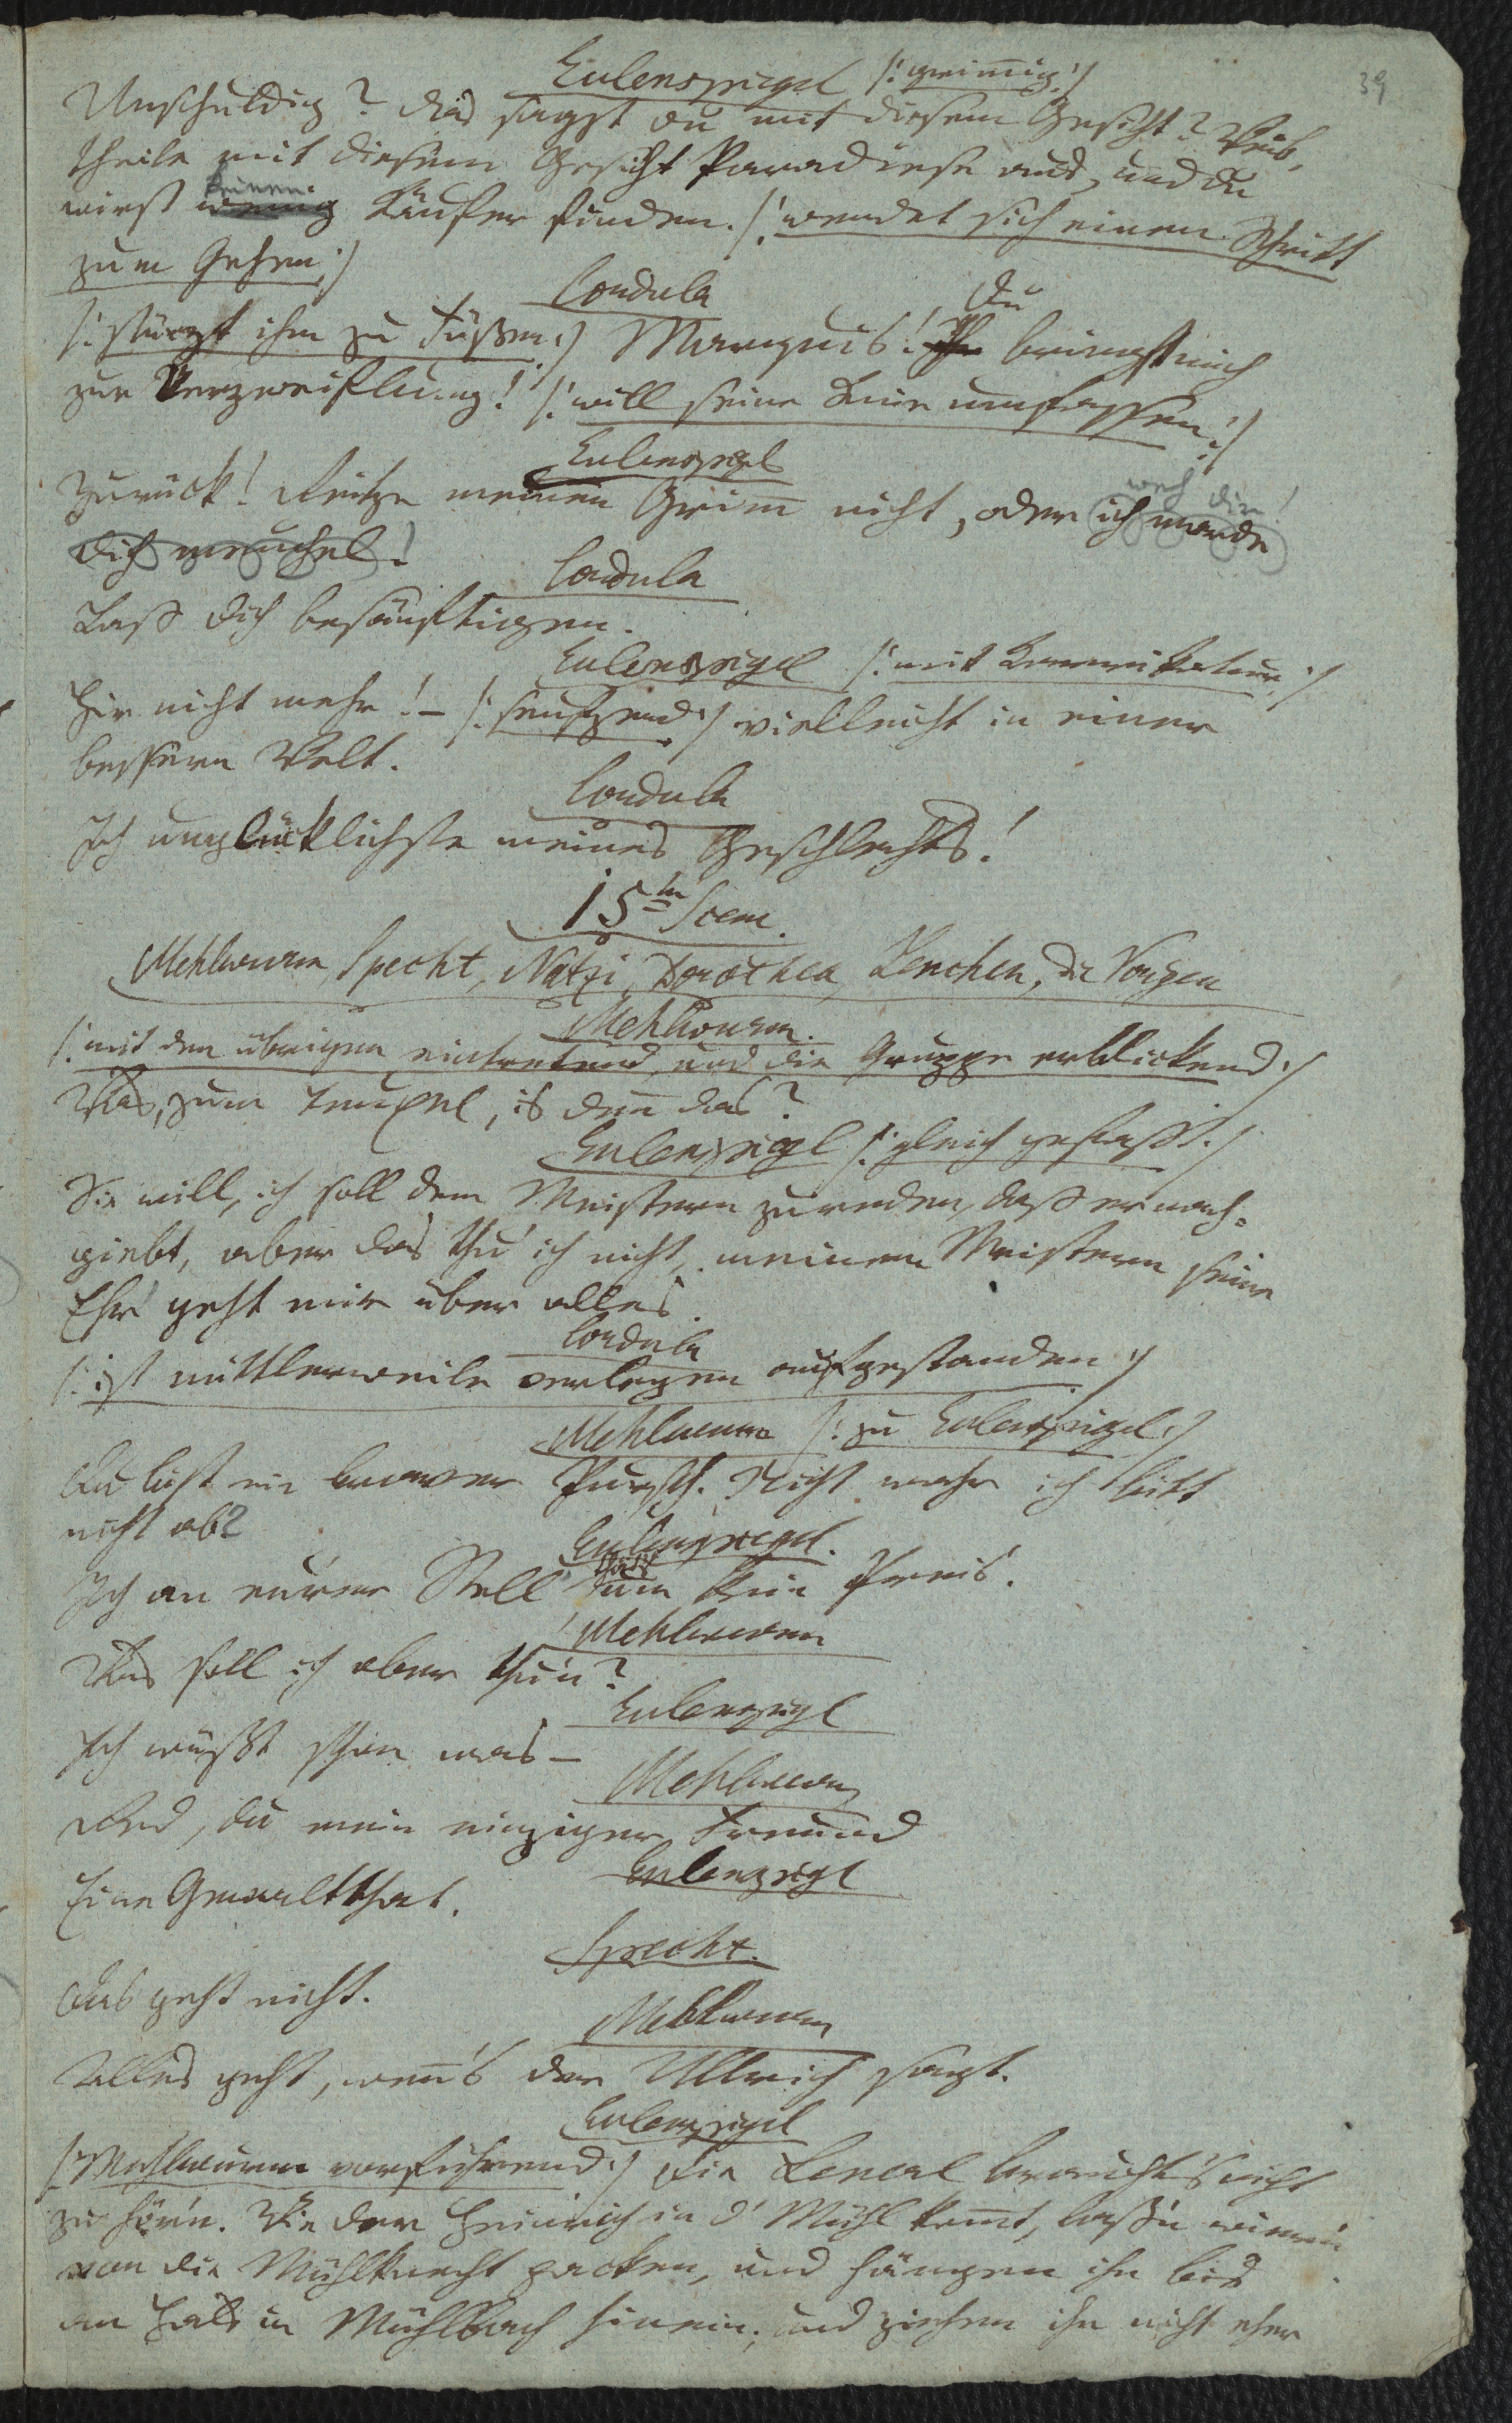 39
Eulenspiegel /: grimmig :/
Unschuldig? das sagst du mit diesem Gesicht? Weib,
theile mit diesem Gesicht Paradiese aus, und du
keinen
wirst wenig Käufer finden. /: wendet sich einen Schritt
zum Gehen :/
Cordula
Du
/: stürzt ihm zu Füßen :/ Marquis! Ihr bringst mich
zur Verzweiflung! /: will seine Knie umfassen :/
Eulenspiegel
weh dir!
Zurück! Reitze meinen Grim̄ nicht, oder ich werde
dich meuchel!
Cordula
Laß dich besänftigen.
Eulenspiegel /: mit Karrikatur :/
Hir nicht mehr! – /: seufzend :/ vielleicht in einer
bessern Welt.
Cordula
Ich unglücklichste meines Geschlechts!
15te Scene.
Mehlwurm, Specht, Natzi, Dorothea, Lenchen, die Vorigen
Mehlwurm.
/: mit den übrigen eintretend, und die Gruppe erblickend :/
Was, zum Teuxel, is den̄ das?
Eulenspiegel /: gleich gefaßt :/
Sie will, ich soll dem Meistern zureden, daß er nach=
giebt, aber das thu' ich nicht, meinem Meistern seine
Ehr' geht mir über alles.
Cordula
/: ist mittlerweile verlegen aufgestanden :/
Mehlwurm /: zu Eulenspiegel :/
Du bist ein braver Pursch. Nicht wahr ich bitt
nicht ab?
Eulenspiegel.
Ich an eurer Stell' um kein Preis.
Mehlwurm
Was soll ich aber thu'n?
Eulenspiegl
Ich wüßt schon was –
Mehlwurm
Red, du mein einziger Freund
Eulenspiegl
Eine Gewaltthat.
Specht.
Das geht nicht.
Mehlwurm
Alles geht, wen̄'s der Ullrich sagt.
Eulenspiegel
/: Mehlwurm vorführend :/ Die Lenerl braucht's nicht
zu hör'n. Wie der Heinrich in d' Mühl kom̄t, laß'n wir'n
von die Mühlknecht packen, und hängen ihn bis
an Hals in Mühlbach hinein, und ziehen ihn nicht eher